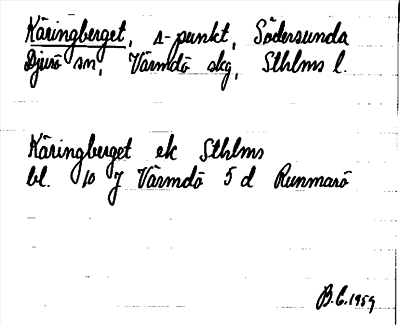 Käringberget, s-punkt, Södersunda
Djurö sn, Värmdö skg, Sthlms l.
Käringberget ek Sthlms
bl. 10 J Värmdö 5 d Runmarö
B.C. 1959